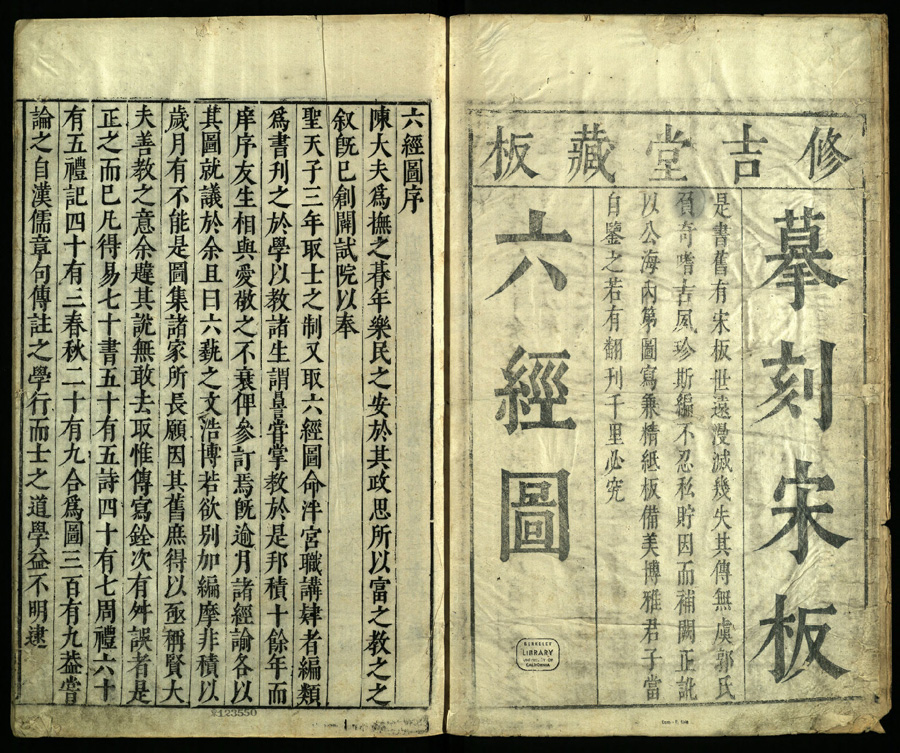 修吉堂藏板
摹刻宋板
是書舊有宋板世遠漫滅幾失其傳無虞郭氏
負奇嗜古夙珍斯編不忍私貯因而補闕正訛
以公海內第圖寫乗精紙板備美博雅君子當
自鑒之若有翻刊千里必究
六經圖
BERKELEY
LIBRARY
UNIVERSITY OF
CALIFORNIA
六經圖序
陳大夫為撫之朞年樂民之安於其政思所以富之教之之
叙旣已創闢試院以奉
聖天子三年取士之制又取六經圖命泮宮職講肄者編類
為書刊之於學以教諸生謂昌言甞掌教於是邦積十餘年而
庠序友生相與愛敬之不衰俾參訂焉旣逾月諸經諭各以
其圖就議於余且曰六藝之文浩博若欲別加編摩非積以
歲月有不能是圖集諸家所長願因其舊庶得以亟稱賢大
夫善教之意余韙其說無敢去取惟傳寫銓次有舛誤者是
正之而已凡得易七十書五十有五詩四十有七周禮六十
有五禮記四十有三春秋二十有九合為圖三百有九葢嘗
論之自漢儒章句傳註之學行而士之道學益不明逮
123550